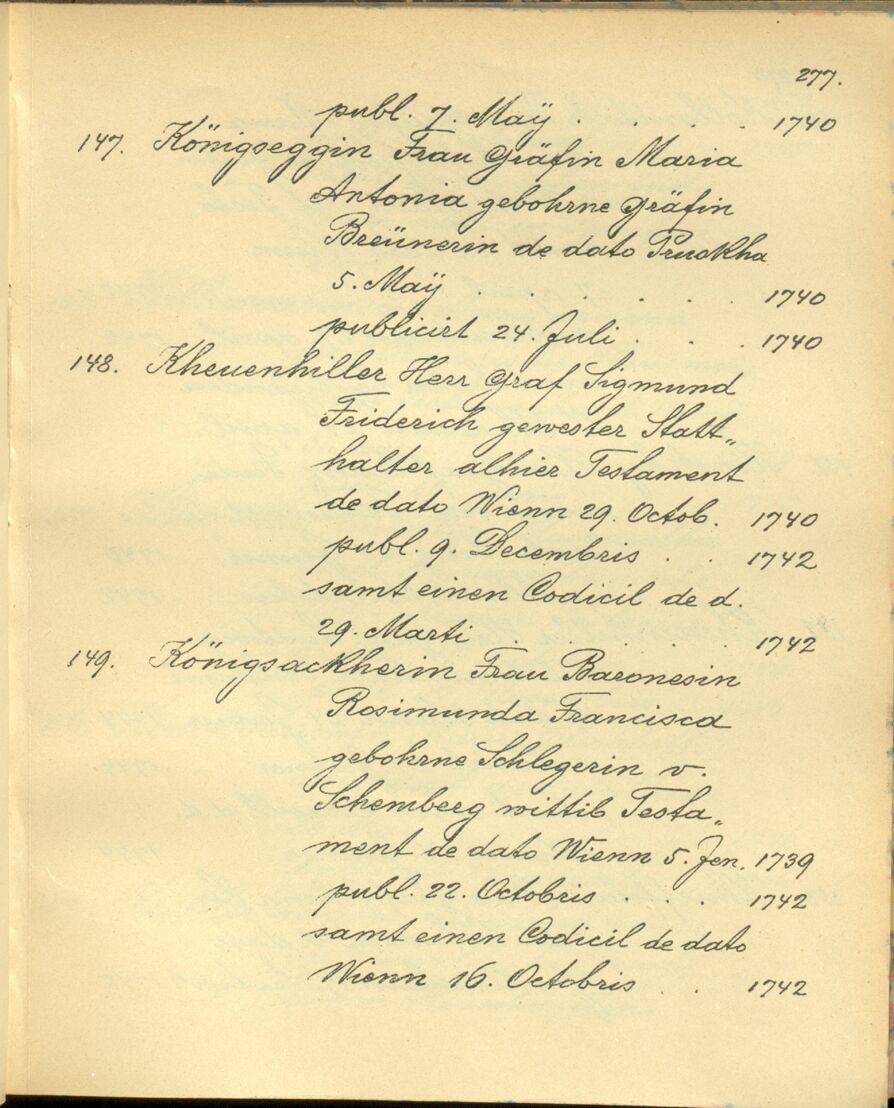 277.
publ. 7. Maÿ . . . . 1740
147. Königseggin Frau Gräfin Maria
Antonia gebohrne Gräfin
Breünerin de dato Pruckha
5. Maÿ . . . . . . 1740
publicirt 24. Juli . . . 1740
148. Kheuenhiller Herr Graf Sigmund
Friderich gewester Statt„
halter alhier Testament
de dato Wienn 29. Octob. 1740
publ. 9. Decembris . . 1742
samt einen Codicil de d.
29. Marti . . . . . 1742
149. Königsackherin Frau Baronesin
Rosimunda Francisca
gebohrne Schlegerin v.
Schemberg wittib Testa„
ment de dato Wienn 5. Jen. 1739
publ. 22. Octobris . . . 1742
samt einen Codicil de dato
Wienn 16. Octobris . . 1742